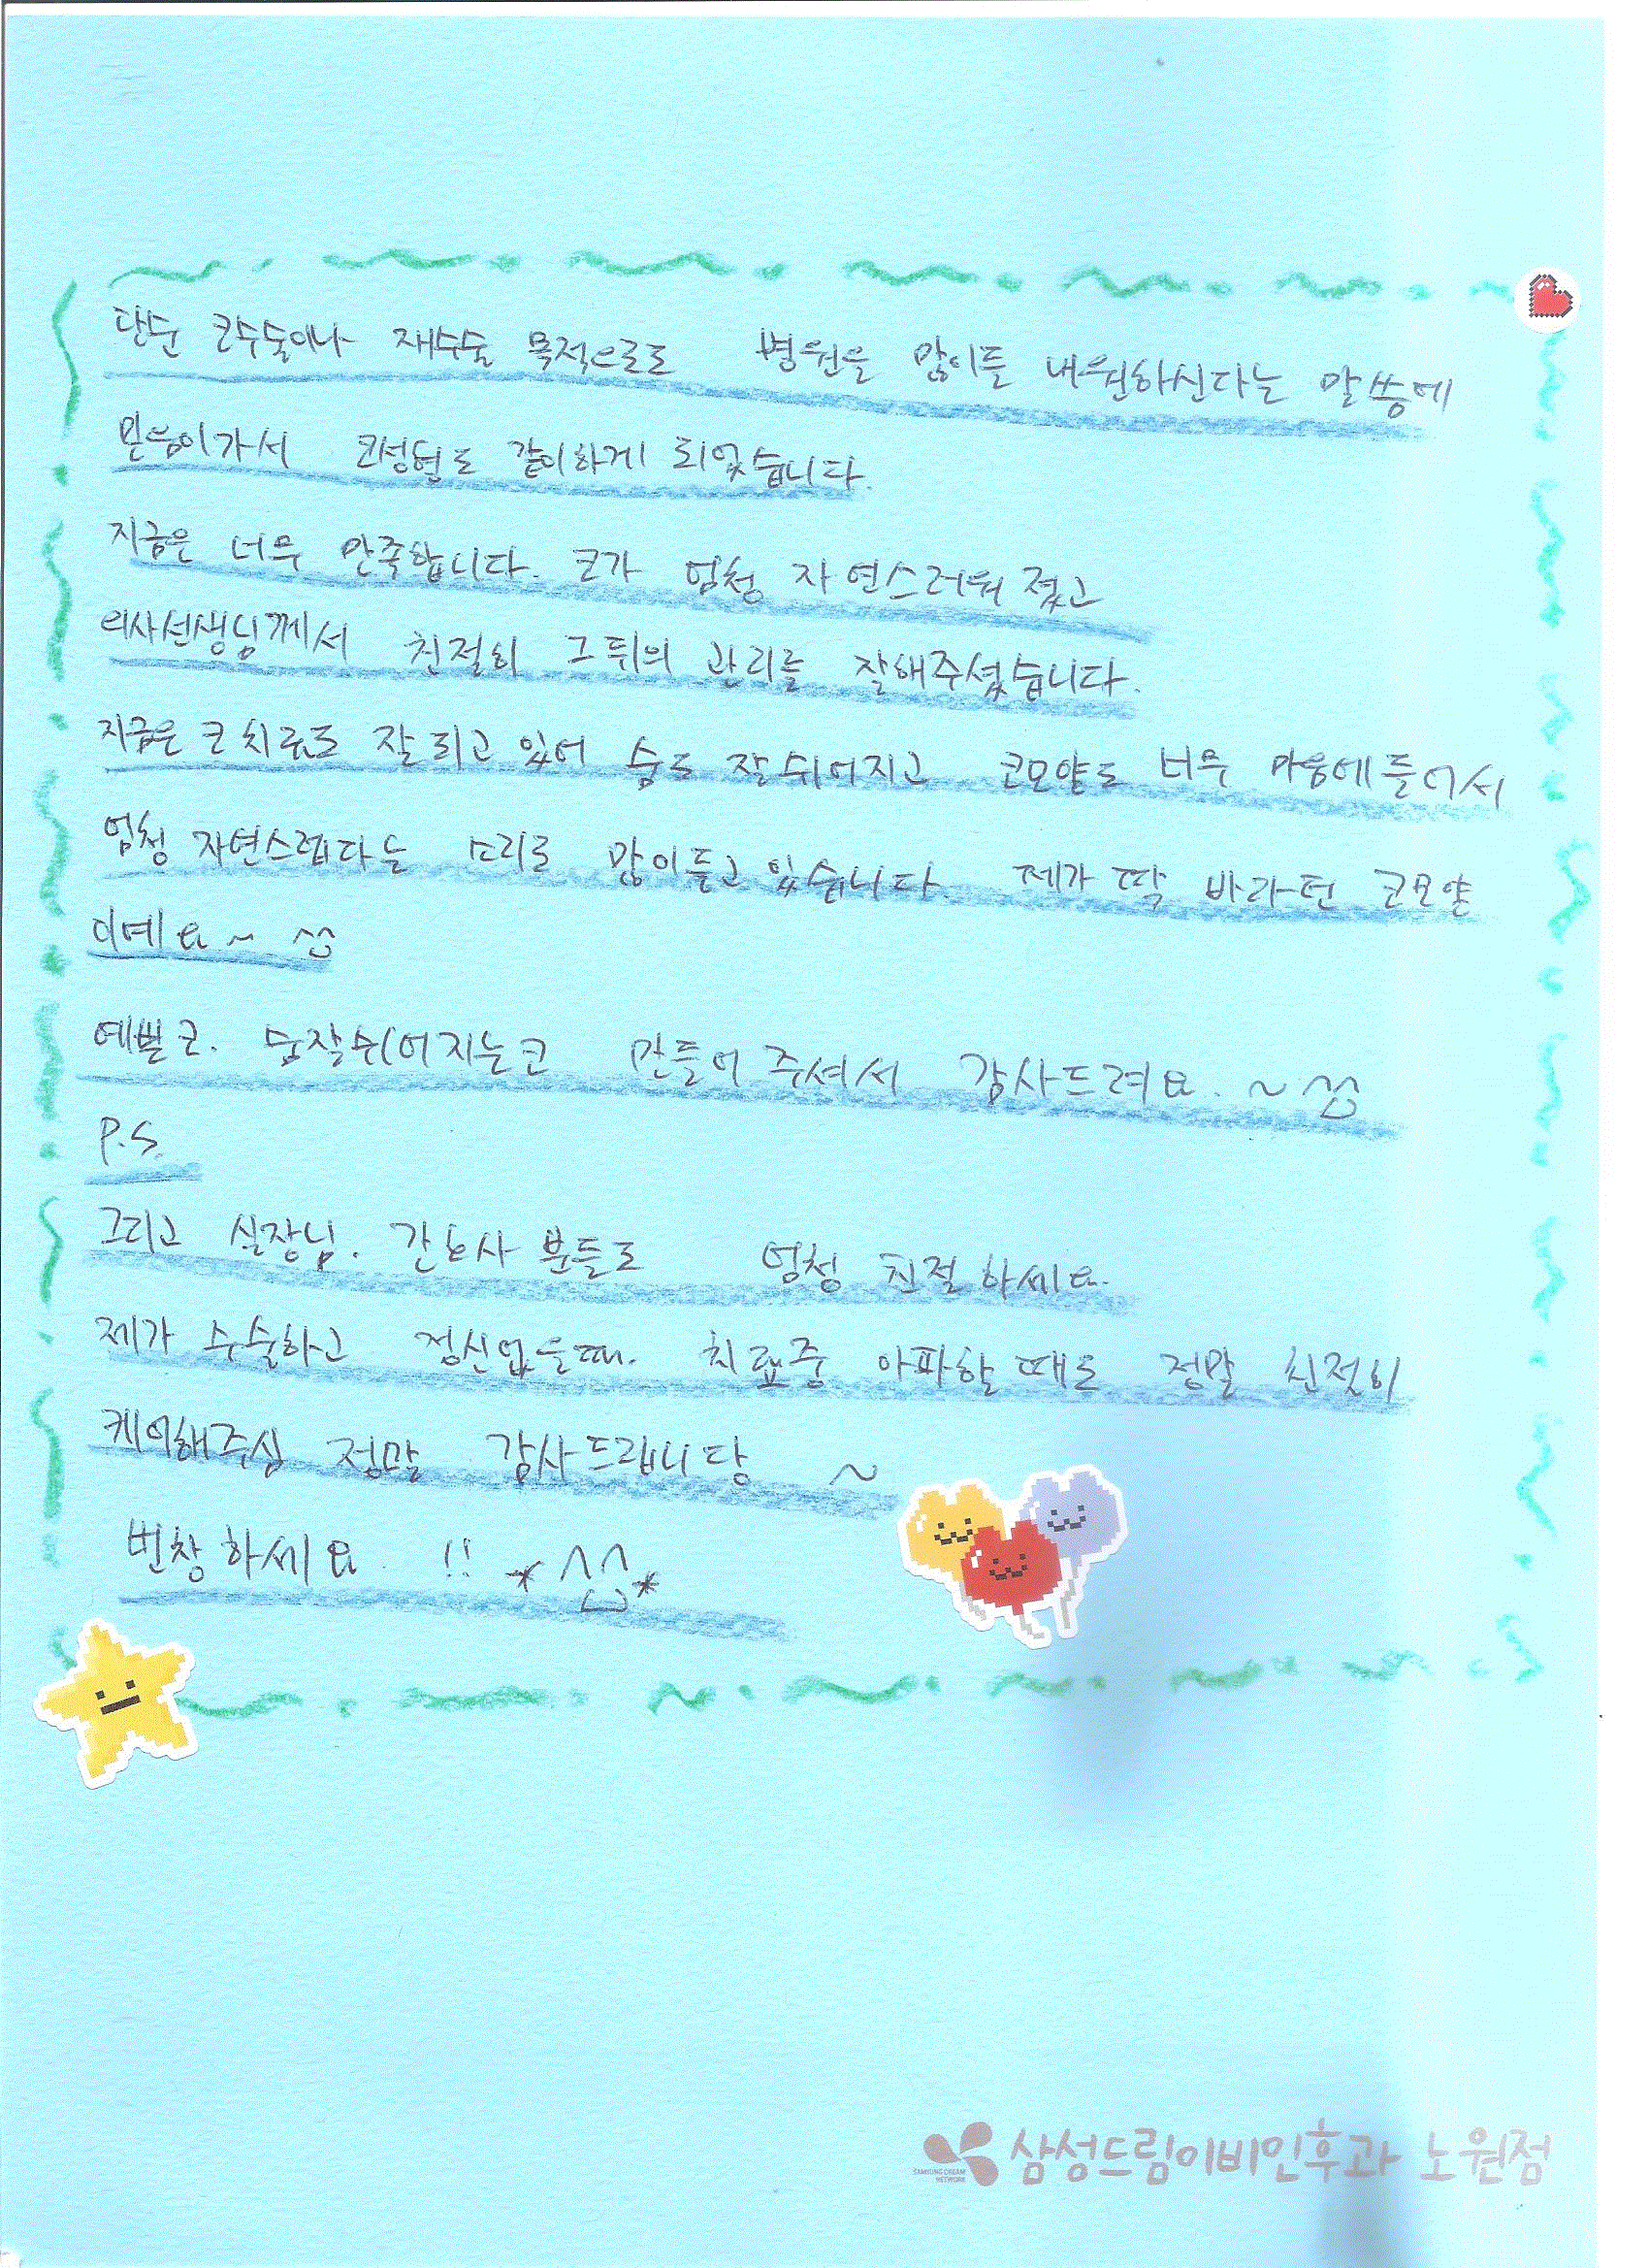 단순 코수술이나 재수술 목적으로도 병원을 많이들 내원하신다는 말씀에
믿음이가서 코성형도 같이하게 되었습니다.
지금은 너무 만족합니다. 코가 엄청 자연스러워 졌고
의사선생님께서 친절히 그뒤의 관리를 잘해주셨습니다.
지금은 코 치료도 잘 되고 있어 숨도 잘 쉬어지고 코모양도 너무 마음에 들어서
엄청 자연스럽다는 소리를 많이듣고 있습니다. 제가 딱 바라던 코모양
이예요~ ^^
예쁜코. 숨잘쉬어지는코 만들어 주셔서 감사드려요. ~ ^^
P.S.
그리고 실장님. 간호사 분들도 엄청 친절하세요.
제가 수술하고 정신없을때. 치료중 아파할 때도 정말 친절히
케어해주심 정말 감사드립니당 ~
번창하세요 !! *^^*
삼성드림이비인후과 노원점
SAMSUNG DREAM
NETWORK